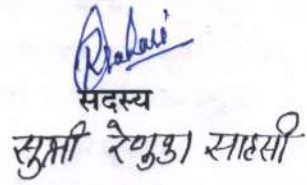 सदस्य
सुश्री रेणुका साहसी